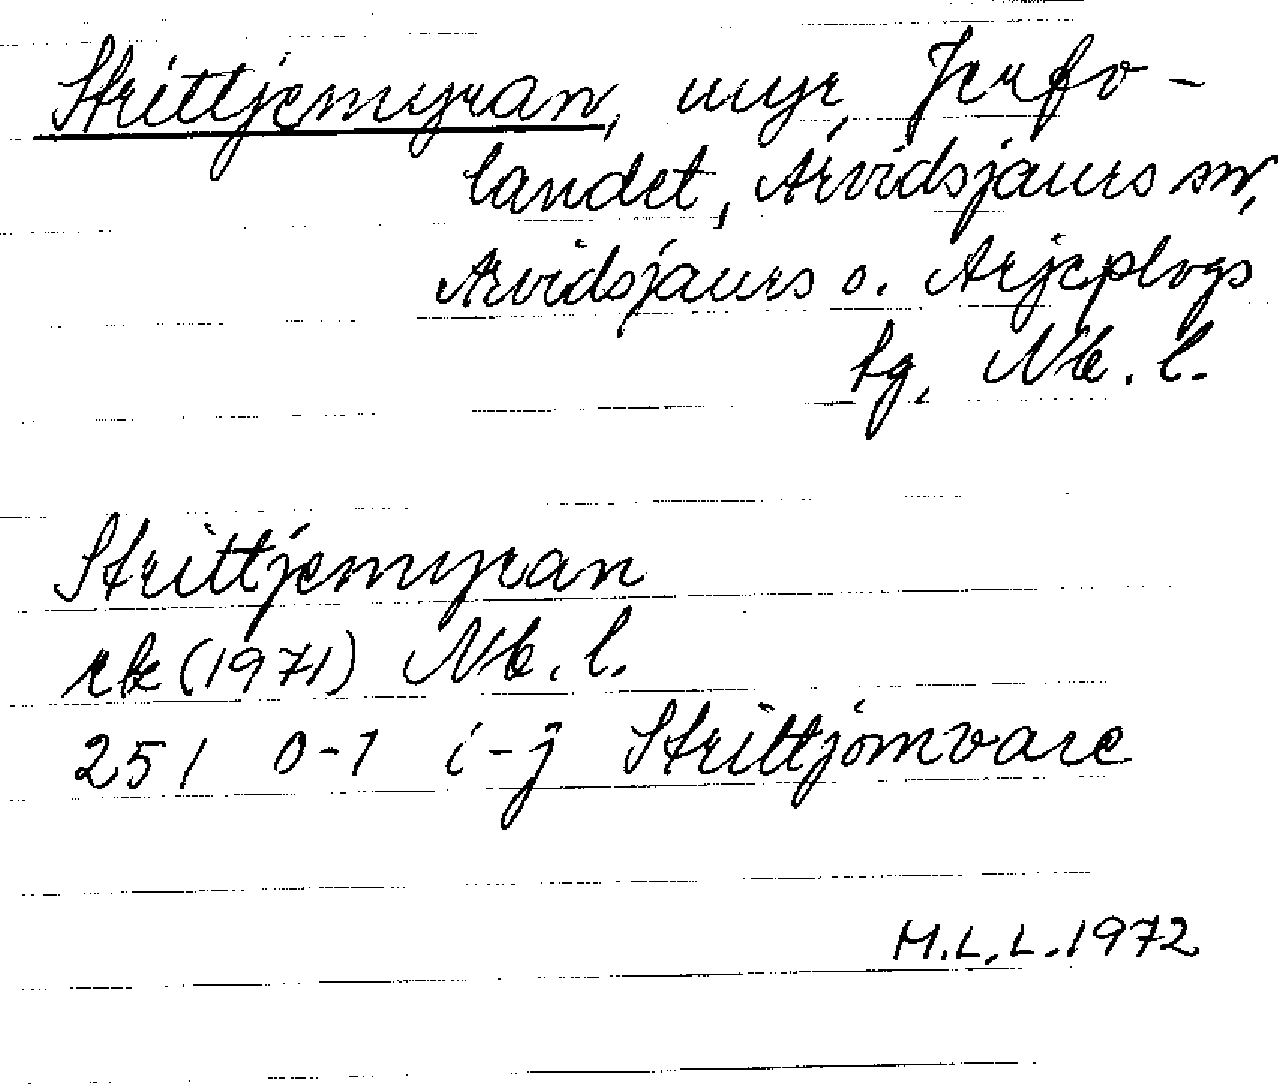 Strittjemyran, myr, Jerfo-
landet, Arvidsjaurs sn,
Arvidsjaurs o. Arjeplogs
tg, Nb. l.
Strittjemyran
rek (1971) Nb. l.
251 0-1 i-j Strittjomvare
M.L.L. 1972